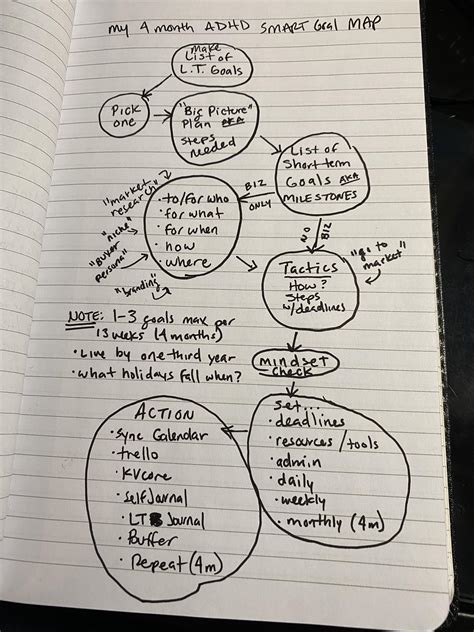 my 4 month ADHD SMART Goal MAP
Make
List of
L.T. Goals
Pick
one
"Big Picture"
Plan AKA
Steps
needed
List of
Short term
Goals AKA
MILESTONES
BIZ
ONLY
NO BIZ
"market
research"
"niche"
"Buyer
persona"
"branding"
• to/for who
• for what
• for when
• how
• where
Tactics
How?
Steps
w/deadlines
"go to
market"
NOTE: 1-3 goals max per
13 weeks (4 months)
• Live by one-third year
• what holidays fall when?
mindset
check
Set...
• deadlines
• resources/tools
• admin
• daily
• weekly
• monthly (4m)
ACTION
• Sync Calendar
• trello
• KVcore
• selfJournal
• LT Journal
• Buffer
• Repeat (4m)